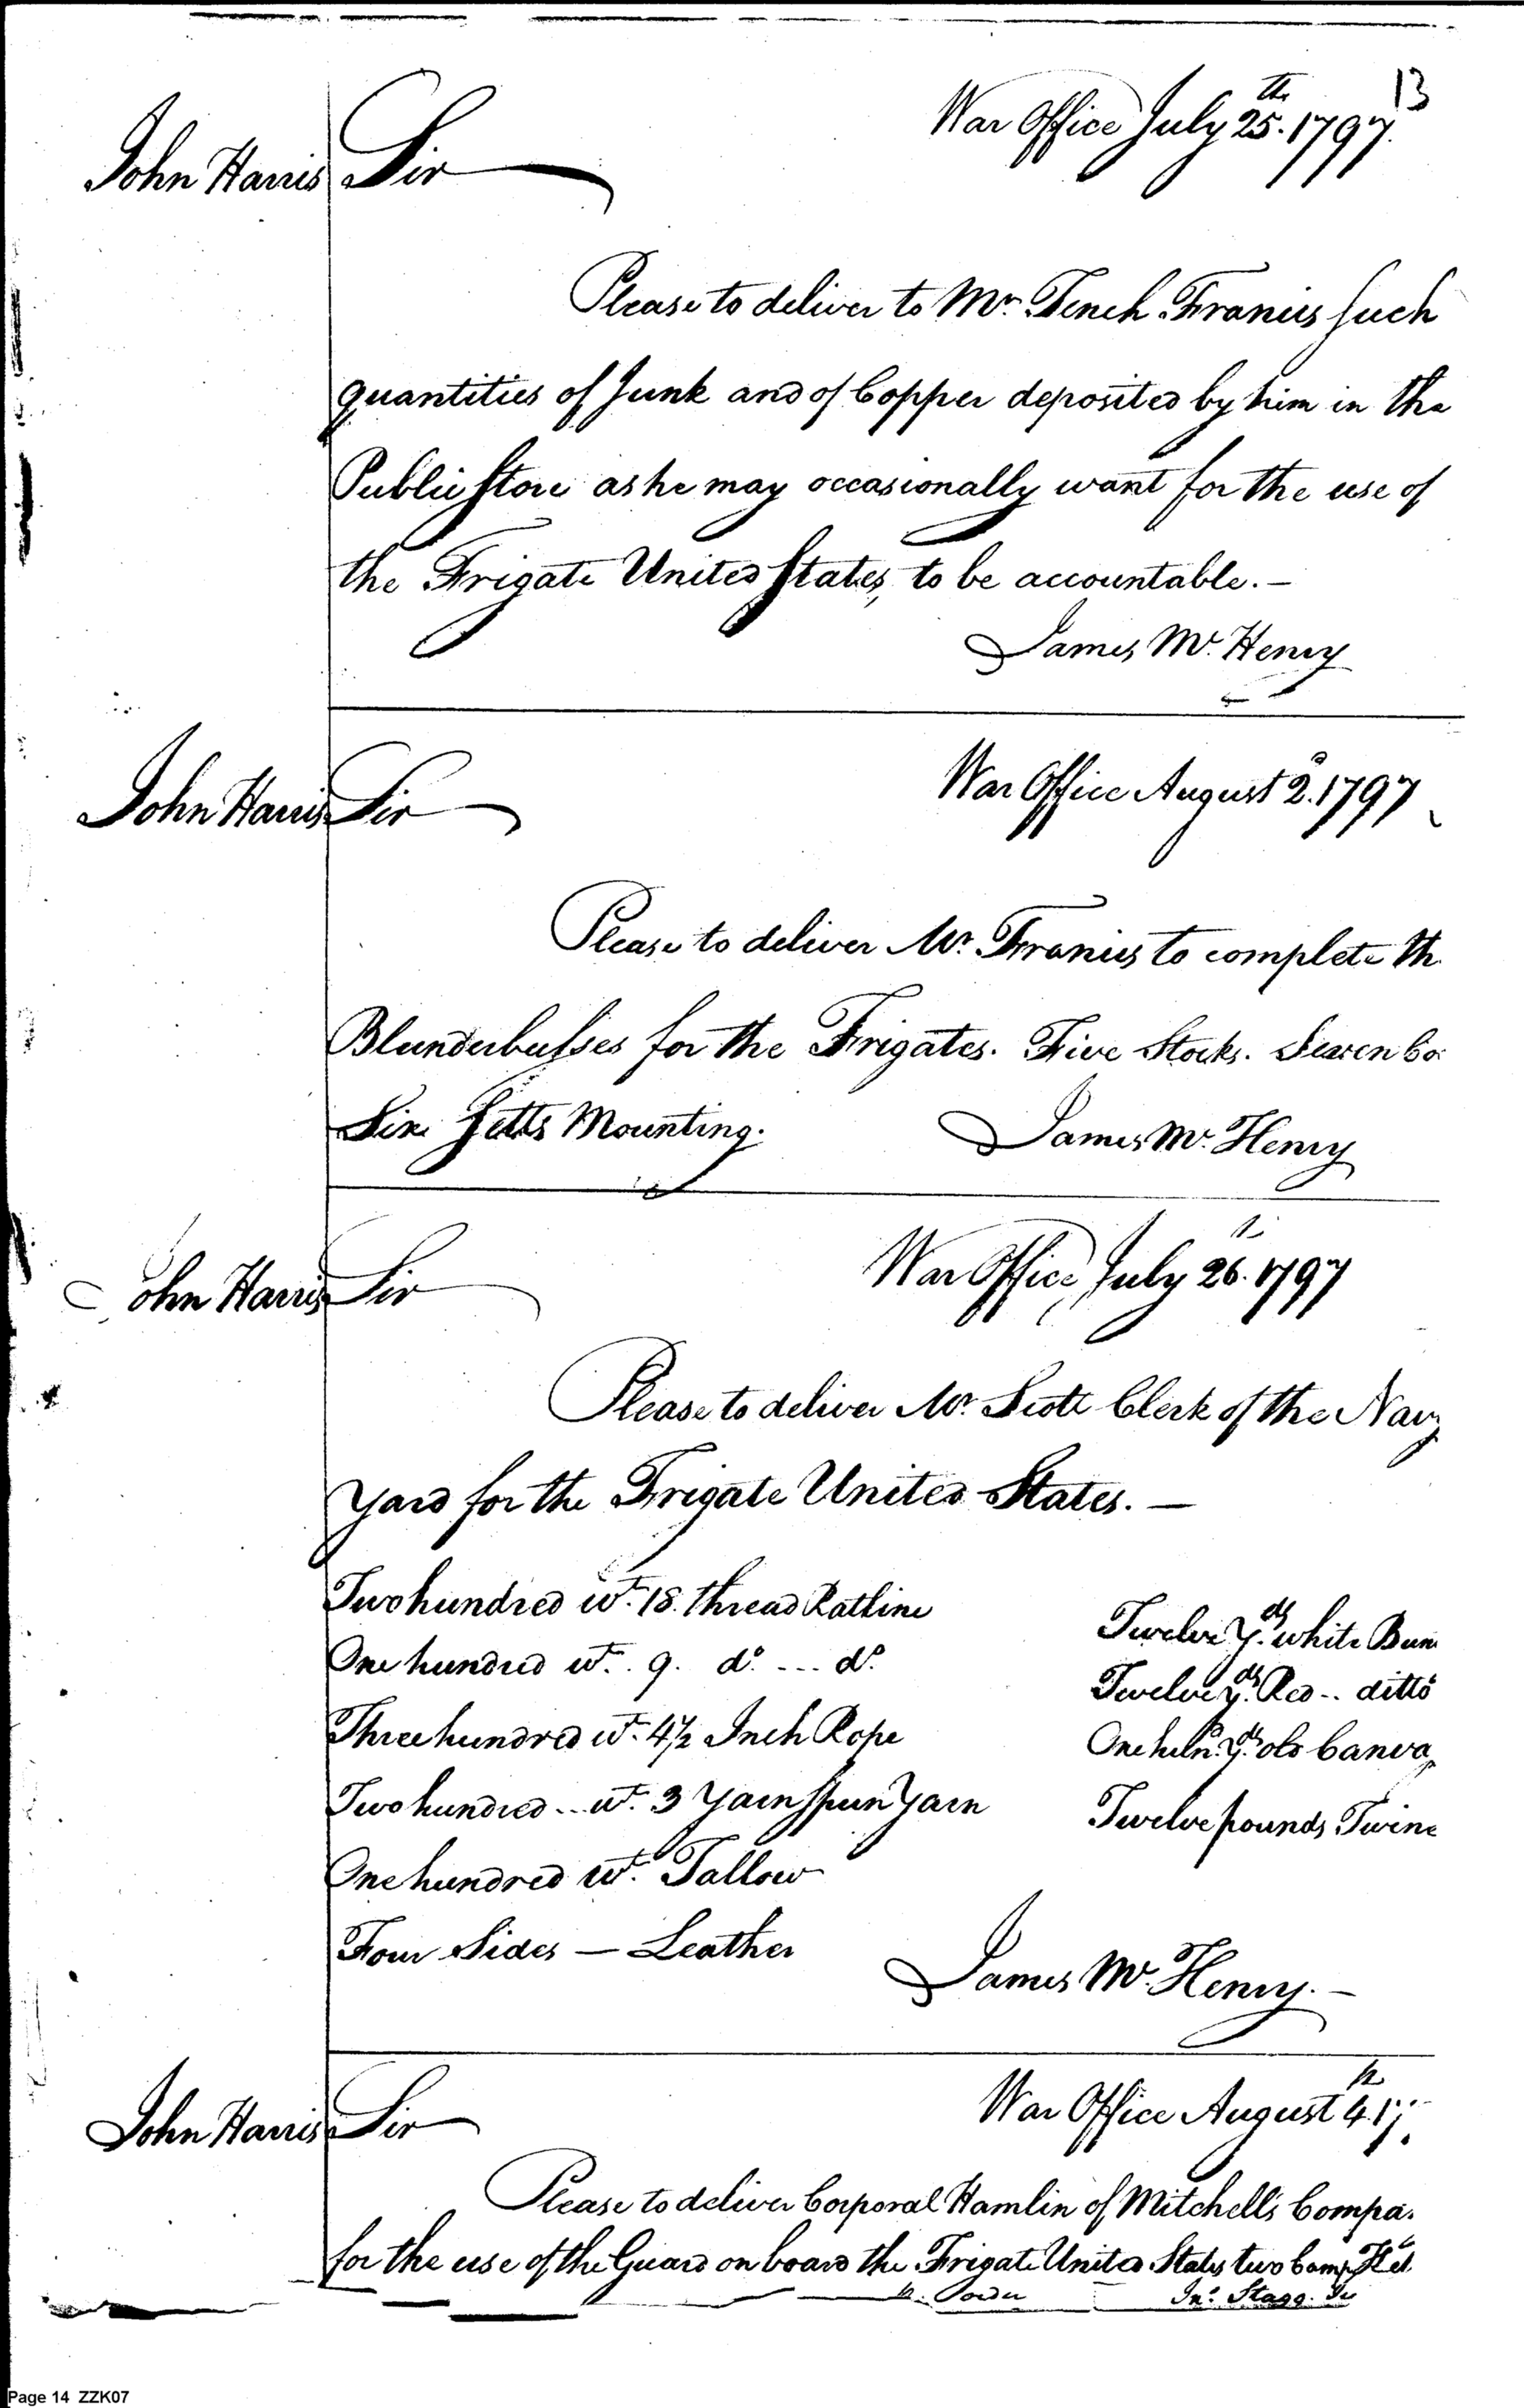 13
War Office July 25th. 1797.
John Harris
Sir
Please to deliver to Mr. Tench Francis such
quantities of Junk and of Copper deposited by him in the
Public Store as he may occasionally want for the use of
the Frigate United States, to be accountable. —
James Mc. Henry
War Office August 2d. 1797
John Harris
Sir
Please to deliver Mr. Francis to complete th
Blunderbusses for the Frigates. Five Stocks. Seven
Six Setts Mounting.
James Mc. Henry
War Office July 26. 1797
John Harris
Sir
Please to deliver Mr. Scott Clerk of the Navy
Yard for the Frigate United States. —
Two hundred wt. 18. thread Ratline
One hundred wt. . 9. do. --- do.
Three hundred wt. 4½ Inch Rope
Two hundred --- wt. 3 Yarn Spun Yarn
One hundred wt. Tallow
Four Sides — Leather
Twelve Yds. white Bun
Twelve Yds. Red -- ditto
One hund. Yds. old Canvas
Twelve pounds Twine
James Mc. Henry. —
War Office August 4th. 17
John Harris
Sir
Please to deliver Corporal Hamlin of Mitchell's Compa.
for the use of the Guard on board the Frigate United States two Camp Ket
p. Order Jno. Stagg. Jr
Page 14 ZZK07